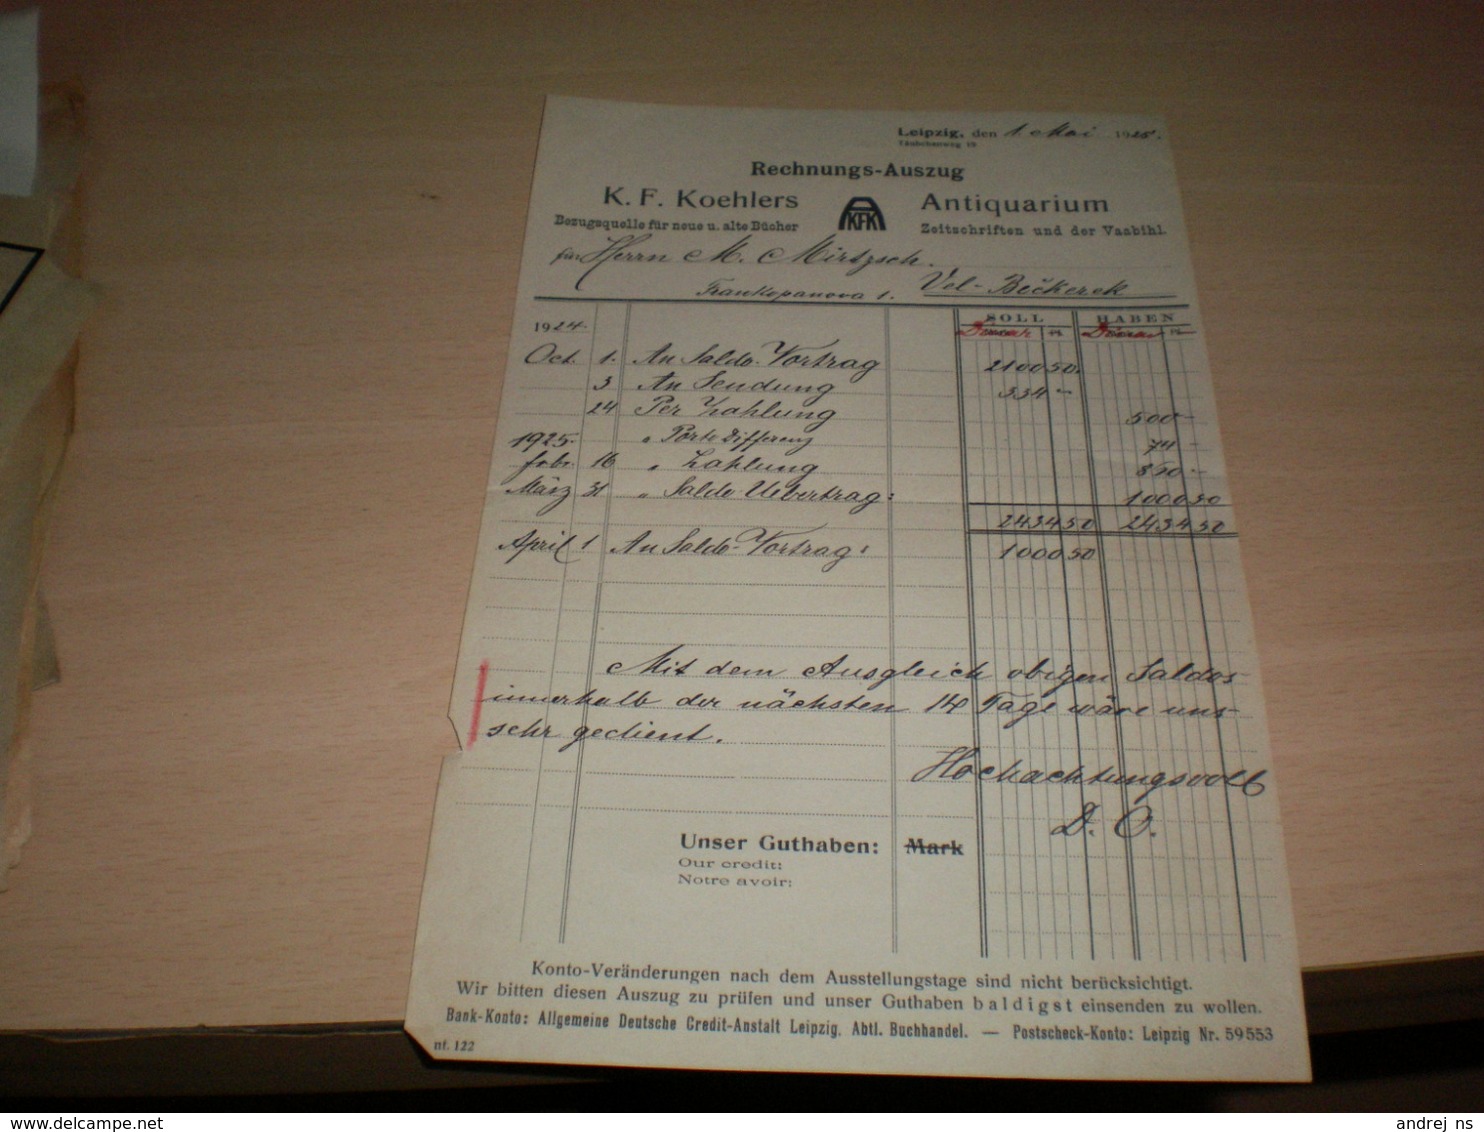 Leipzig, den 1. Mai 1925.
Täubchenweg 19
Rechnungs-Auszug
K. F. Koehlers KFK Antiquarium
Bezugsquelle für neue u. alte Bücher Zeitschriften und der Vasbihl.
für Herrn M. Mirtzsch.
Frankopanova 1. Vel-Bečkerek
SOLL HABEN
1924. Dinar Dinar
Oct. 1. An Saldo-Vortrag 2100 50.
3 An Sendung 334 -
24 Per Zahlung 500 -
1925. " Porto Differenz 74 -
febr. 16 " Zahlung 860 -
März 31 " Saldo Uebertrag: 1000 50
2434 50 2434 50
April 1 An Saldo-Vortrag: 1000 50
Mit dem Ausgleich obigen Saldos
innerhalb der nächsten 14 Tage wäre uns
sehr gedient.
Hochachtungsvoll
D. O.
Unser Guthaben: Mark
Our credit:
Notre avoir:
Konto-Veränderungen nach dem Ausstellungstage sind nicht berücksichtigt.
Wir bitten diesen Auszug zu prüfen und unser Guthaben baldigst einsenden zu wollen.
Bank-Konto: Allgemeine Deutsche Credit-Anstalt Leipzig, Abtl. Buchhandel. — Postscheck-Konto: Leipzig Nr. 59553
nf. 122
andrej ns